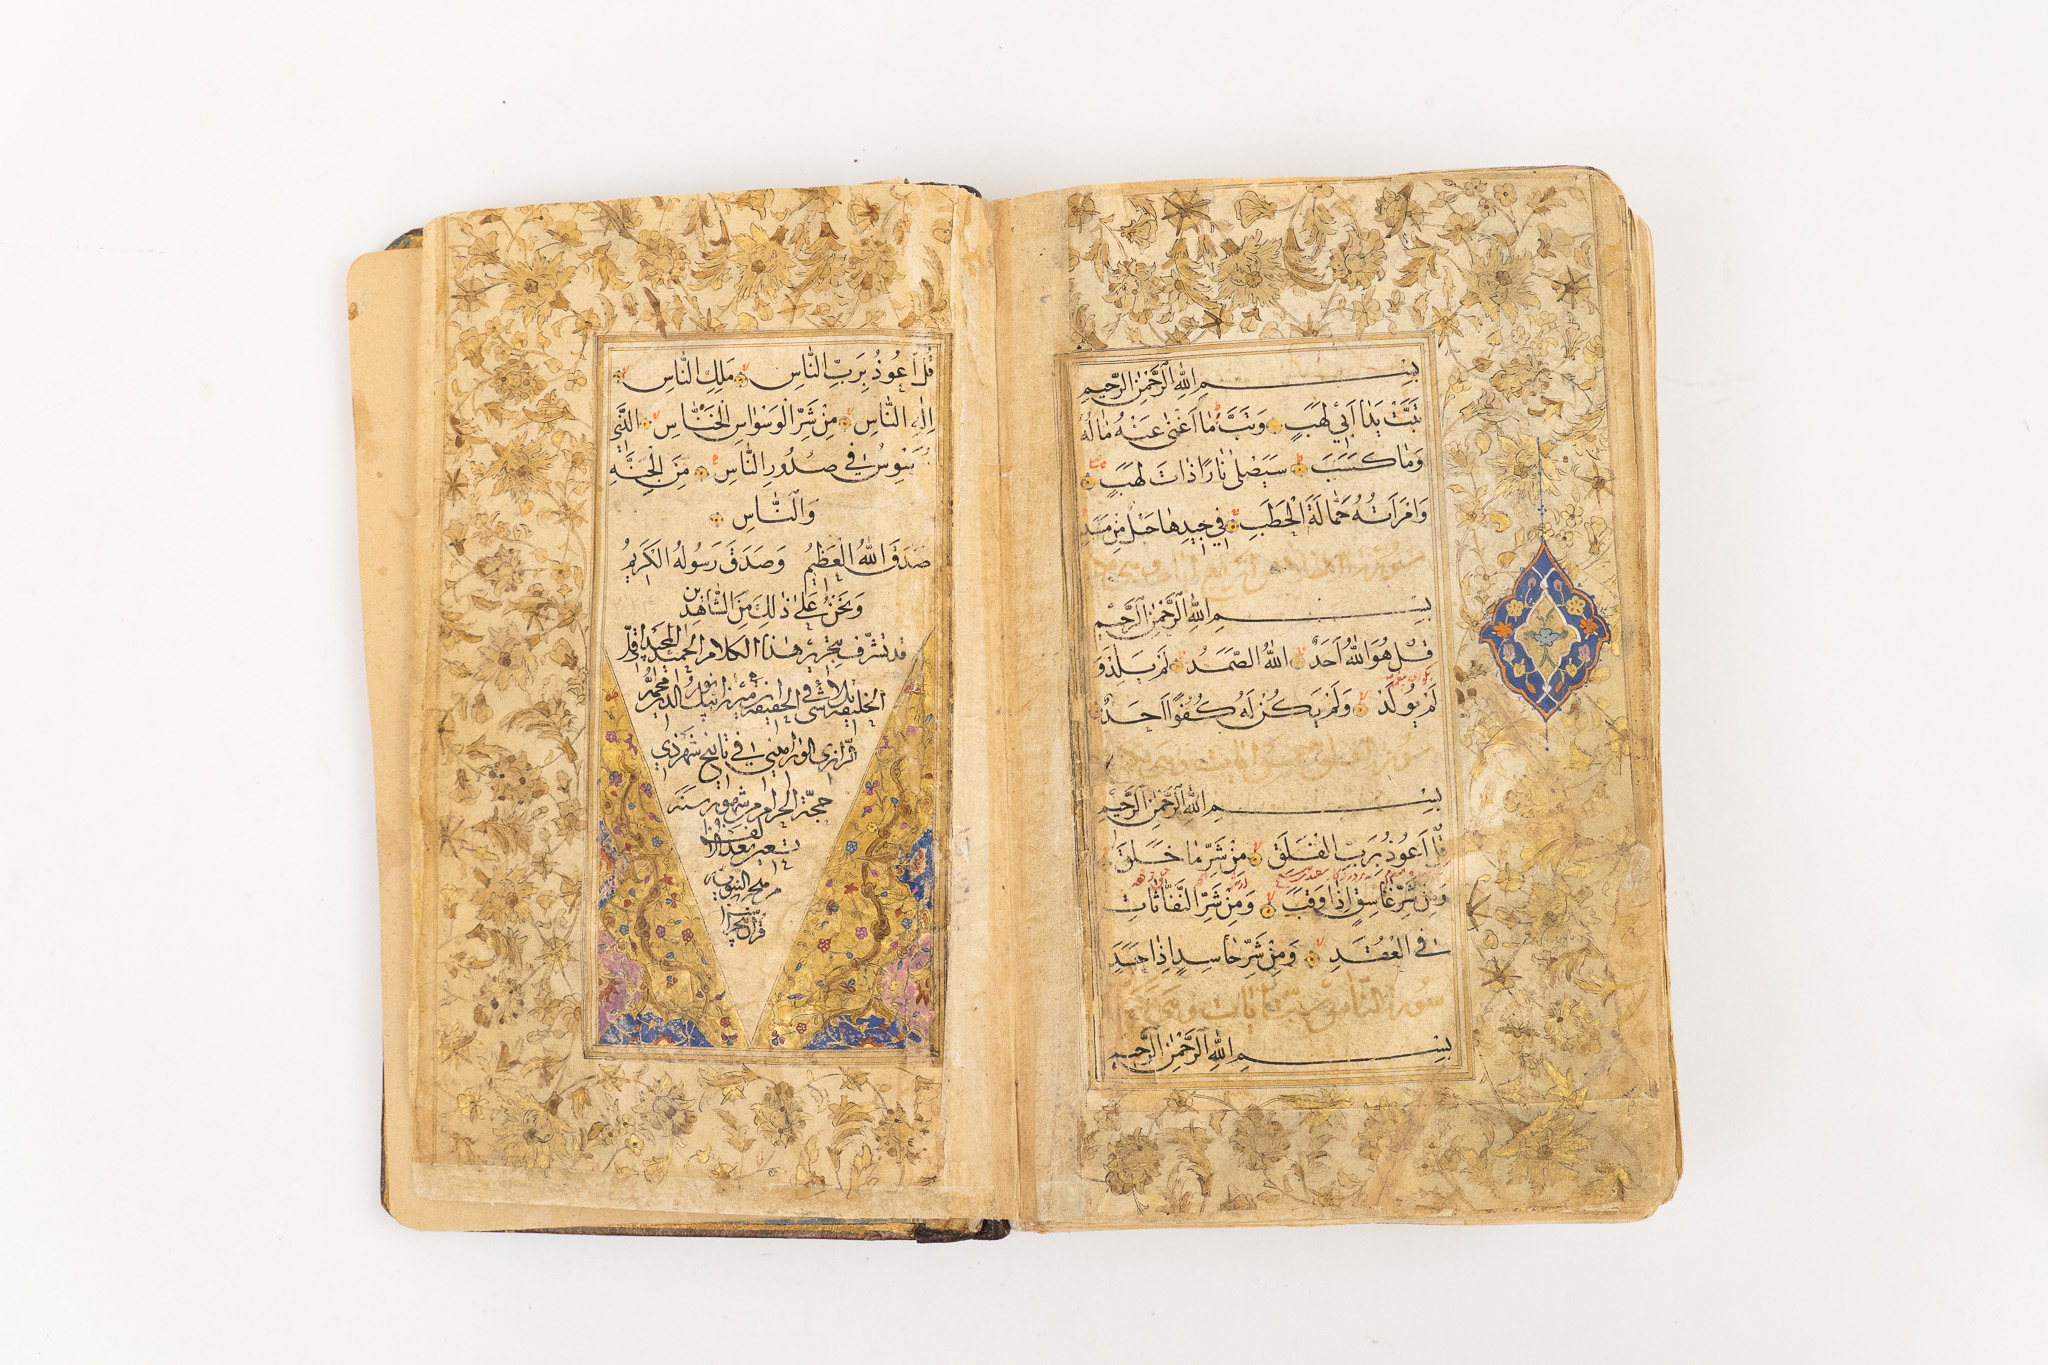 بِسْمِ اللهِ الرَّحْمٰنِ الرَّحِيمِ
تَبَّتْ يَدَا اَبِي لَهَبٍ وَتَبَّ مَا اَغْنٰى عَنْهُ مَالُهُ
وَمَا كَسَبَ سَيَصْلٰى نَارًا ذَاتَ لَهَبٍ
وَامْرَاَتُهُ حَمَّالَةَ الْحَطَبِ فِي جِيدِهَا حَبْلٌ مِنْ مَسَدٍ
بِسْمِ اللهِ الرَّحْمٰنِ الرَّحِيمِ
قُلْ هُوَ اللهُ اَحَدٌ اَللهُ الصَّمَدُ لَمْ يَلِدْ وَ
لَمْ يُولَدْ وَلَمْ يَكُنْ لَهُ كُفُوًا اَحَدٌ
بِسْمِ اللهِ الرَّحْمٰنِ الرَّحِيمِ
قُلْ اَعُوذُ بِرَبِّ الْفَلَقِ مِنْ شَرِّ مَا خَلَقَ
وَمِنْ شَرِّ غَاسِقٍ اِذَا وَقَبَ وَمِنْ شَرِّ النَّفَّاثَاتِ
فِي الْعُقَدِ وَمِنْ شَرِّ حَاسِدٍ اِذَا حَسَدَ
سورة الناس ست ايات وهي
بِسْمِ اللهِ الرَّحْمٰنِ الرَّحِيمِ
قُلْ اَعُوذُ بِرَبِّ النَّاسِ مَلِكِ النَّاسِ
اِلٰهِ النَّاسِ مِنْ شَرِّ الْوَسْوَاسِ الْخَنَّاسِ الَّذِي
يُوَسْوِسُ فِي صُدُورِ النَّاسِ مِنَ الْجِنَّةِ
وَالنَّاسِ
صَدَقَ اللهُ الْعَظِيمُ وَصَدَقَ رَسُولُهُ الْكَرِيمُ
وَنَحْنُ عَلٰى ذٰلِكَ مِنَ الشَّاهِدِينَ
قد تشرف بتحرير هذا الكلام الحميد المجيد اقل
الخليقة بل لا شئ في الحقيقة
الرازي الوراميني في تاريخ شهر ذي
حجة الحرام من شهور سنة
من الهجرة النبوية